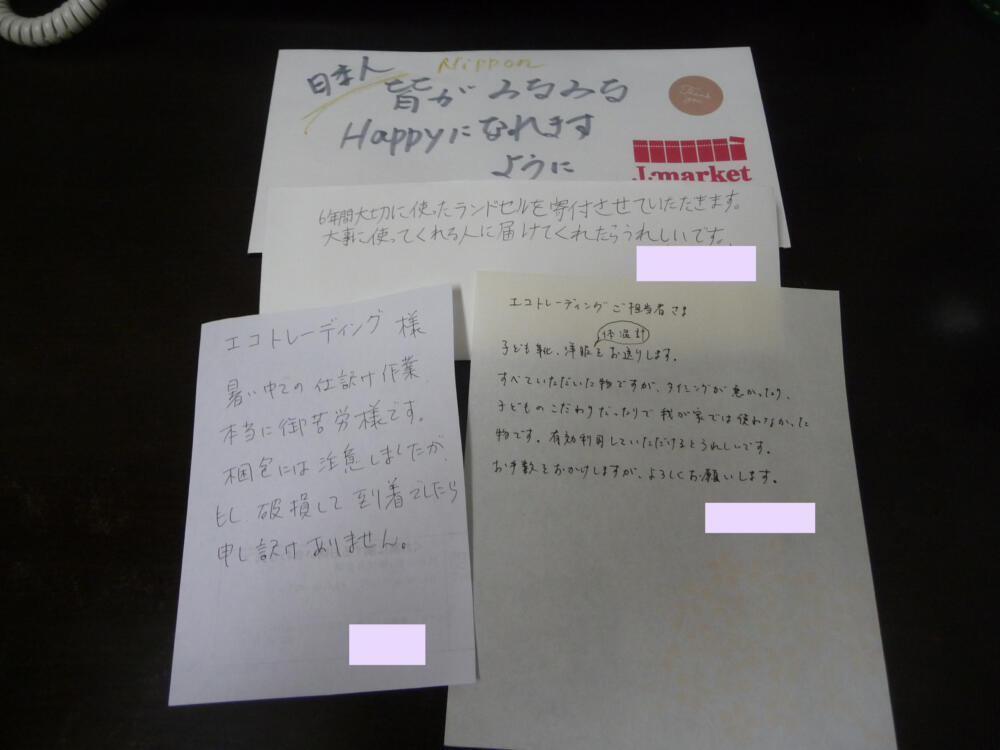 Nippon
日本人
皆が みるみる
Happyになれます
ように
Thank you
J-market
6年間大切に使ったランドセルを寄付させていただきます。
大事に使ってくれる人に届けてくれたらうれしいです。
エコトレーディング 様
暑い中での仕訳け作業、
本当に御苦労様です。
梱包には注意しましたが、
もし、破損して到着でしたら
申し訳けありません。
エコトレーディング ご担当者さま
体温計
子ども靴、洋服をお送りします。
すべていただいた物ですが、タイミングが悪かったり、
子どものこだわりだったりで我が家では使わなかった
物です。有効利用していただけるとうれしいです。
お手数をおかけしますが、よろしくお願いします。